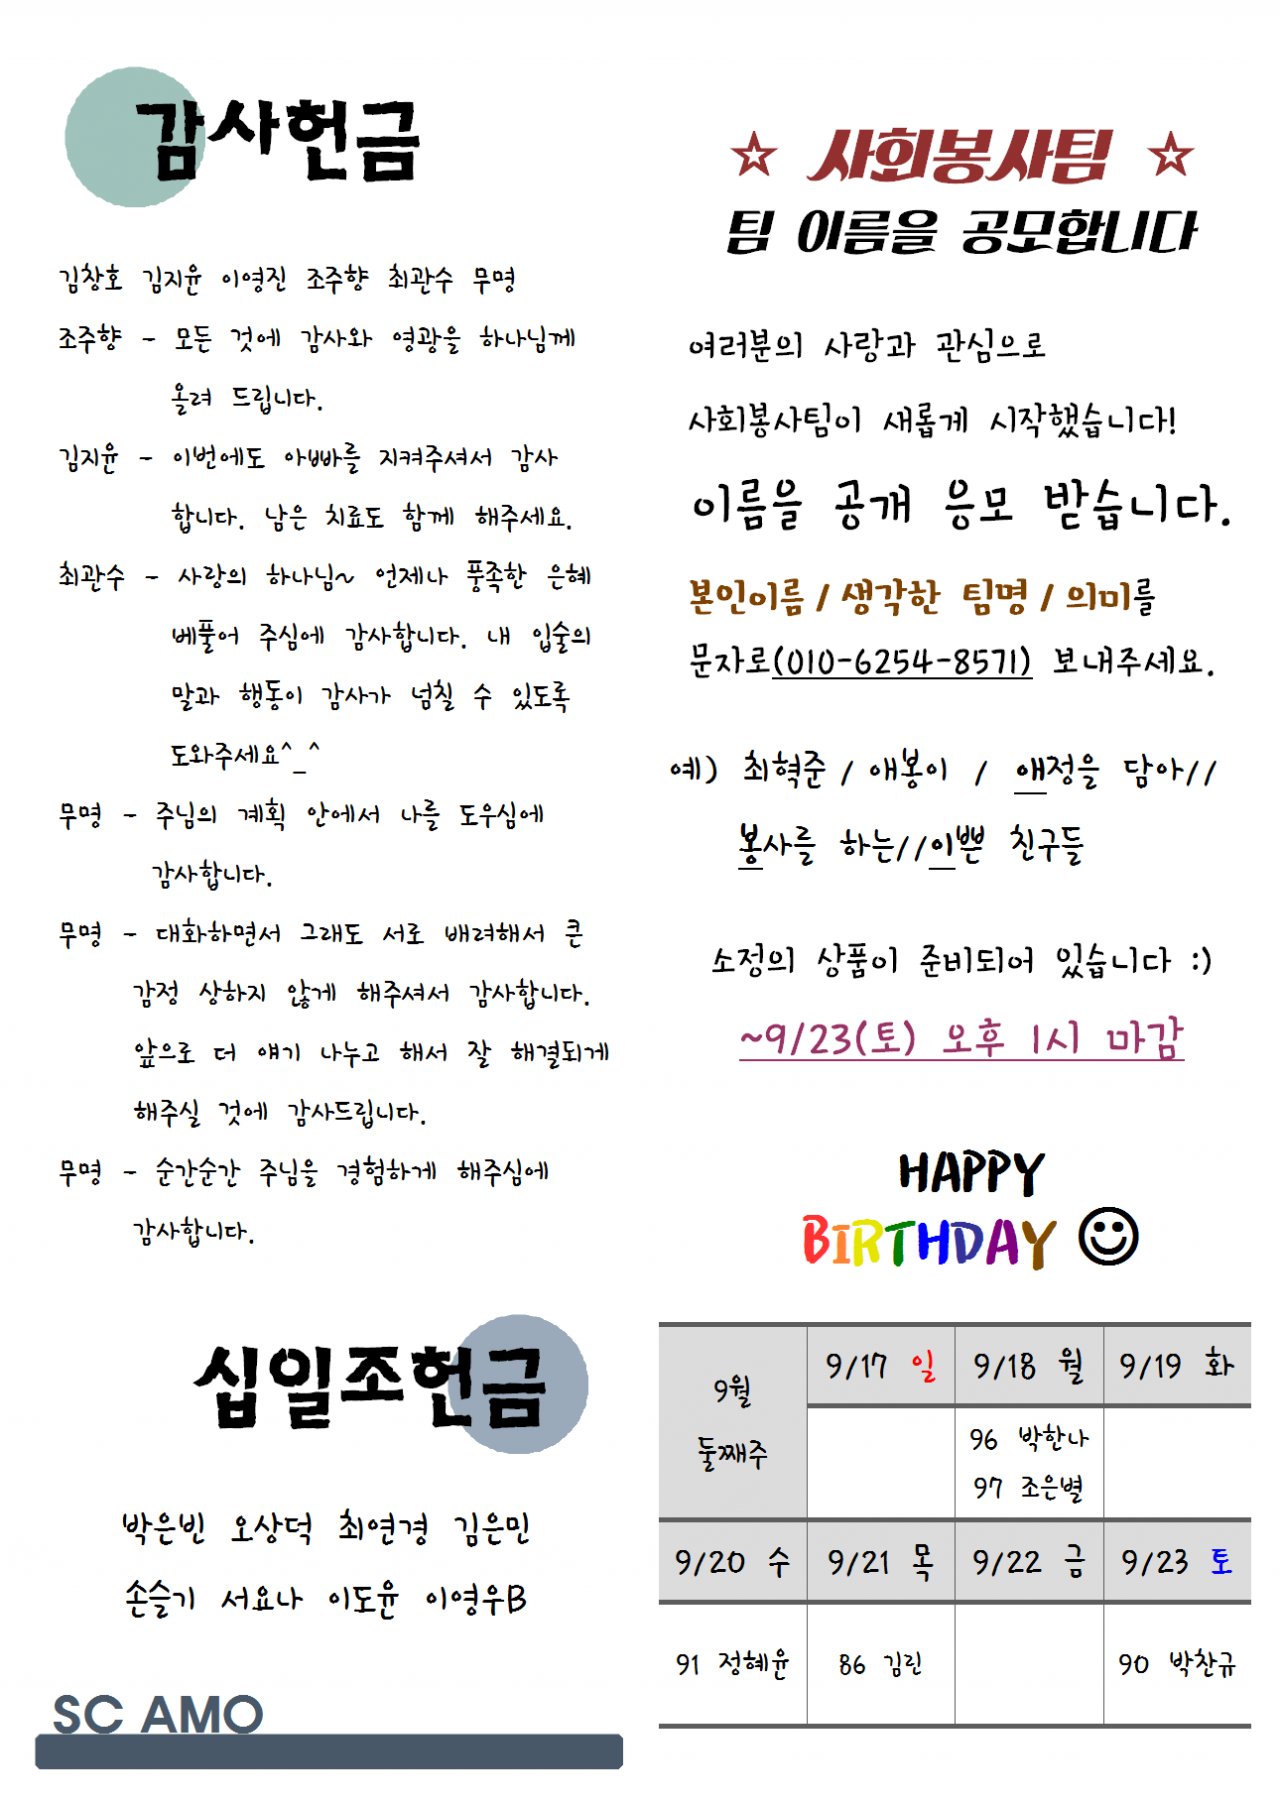 감사헌금
김창호 김지윤 이영진 조주향 최관수 무명
조주향 - 모든 것에 감사와 영광을 하나님께
올려 드립니다.
김지윤 - 이번에도 아빠를 지켜주셔서 감사
합니다. 남은 치료도 함께 해주세요.
최관수 - 사랑의 하나님~ 언제나 풍족한 은혜
베풀어 주심에 감사합니다. 내 입술의
말과 행동이 감사가 넘칠 수 있도록
도와주세요^_^
무명 - 주님의 계획 안에서 나를 도우심에
감사합니다.
무명 - 대화하면서 그래도 서로 배려해서 큰
감정 상하지 않게 해주셔서 감사합니다.
앞으로 더 얘기 나누고 해서 잘 해결되게
해주실 것에 감사드립니다.
무명 - 순간순간 주님을 경험하게 해주심에
감사합니다.
십일조헌금
박은빈 오상덕 최연경 김은민
손슬기 서요나 이도윤 이영우B
SC AMO
☆ 사회봉사팀 ☆
팀 이름을 공모합니다
여러분의 사랑과 관심으로
사회봉사팀이 새롭게 시작했습니다!
이름을 공개 응모 받습니다.
본인이름 / 생각한 팀명 / 의미를
문자로(010-6254-8571) 보내주세요.
예) 최혁준 / 애봉이 / 애정을 담아//
봉사를 하는//이쁜 친구들
소정의 상품이 준비되어 있습니다 :)
~9/23(토) 오후 1시 마감
HAPPY
BIRTHDAY
9월
둘째주
9/17 일 9/18 월 9/19 화
96 박한나
97 조은별
9/20 수 9/21 목 9/22 금 9/23 토
91 정혜윤 86 김린 90 박찬규